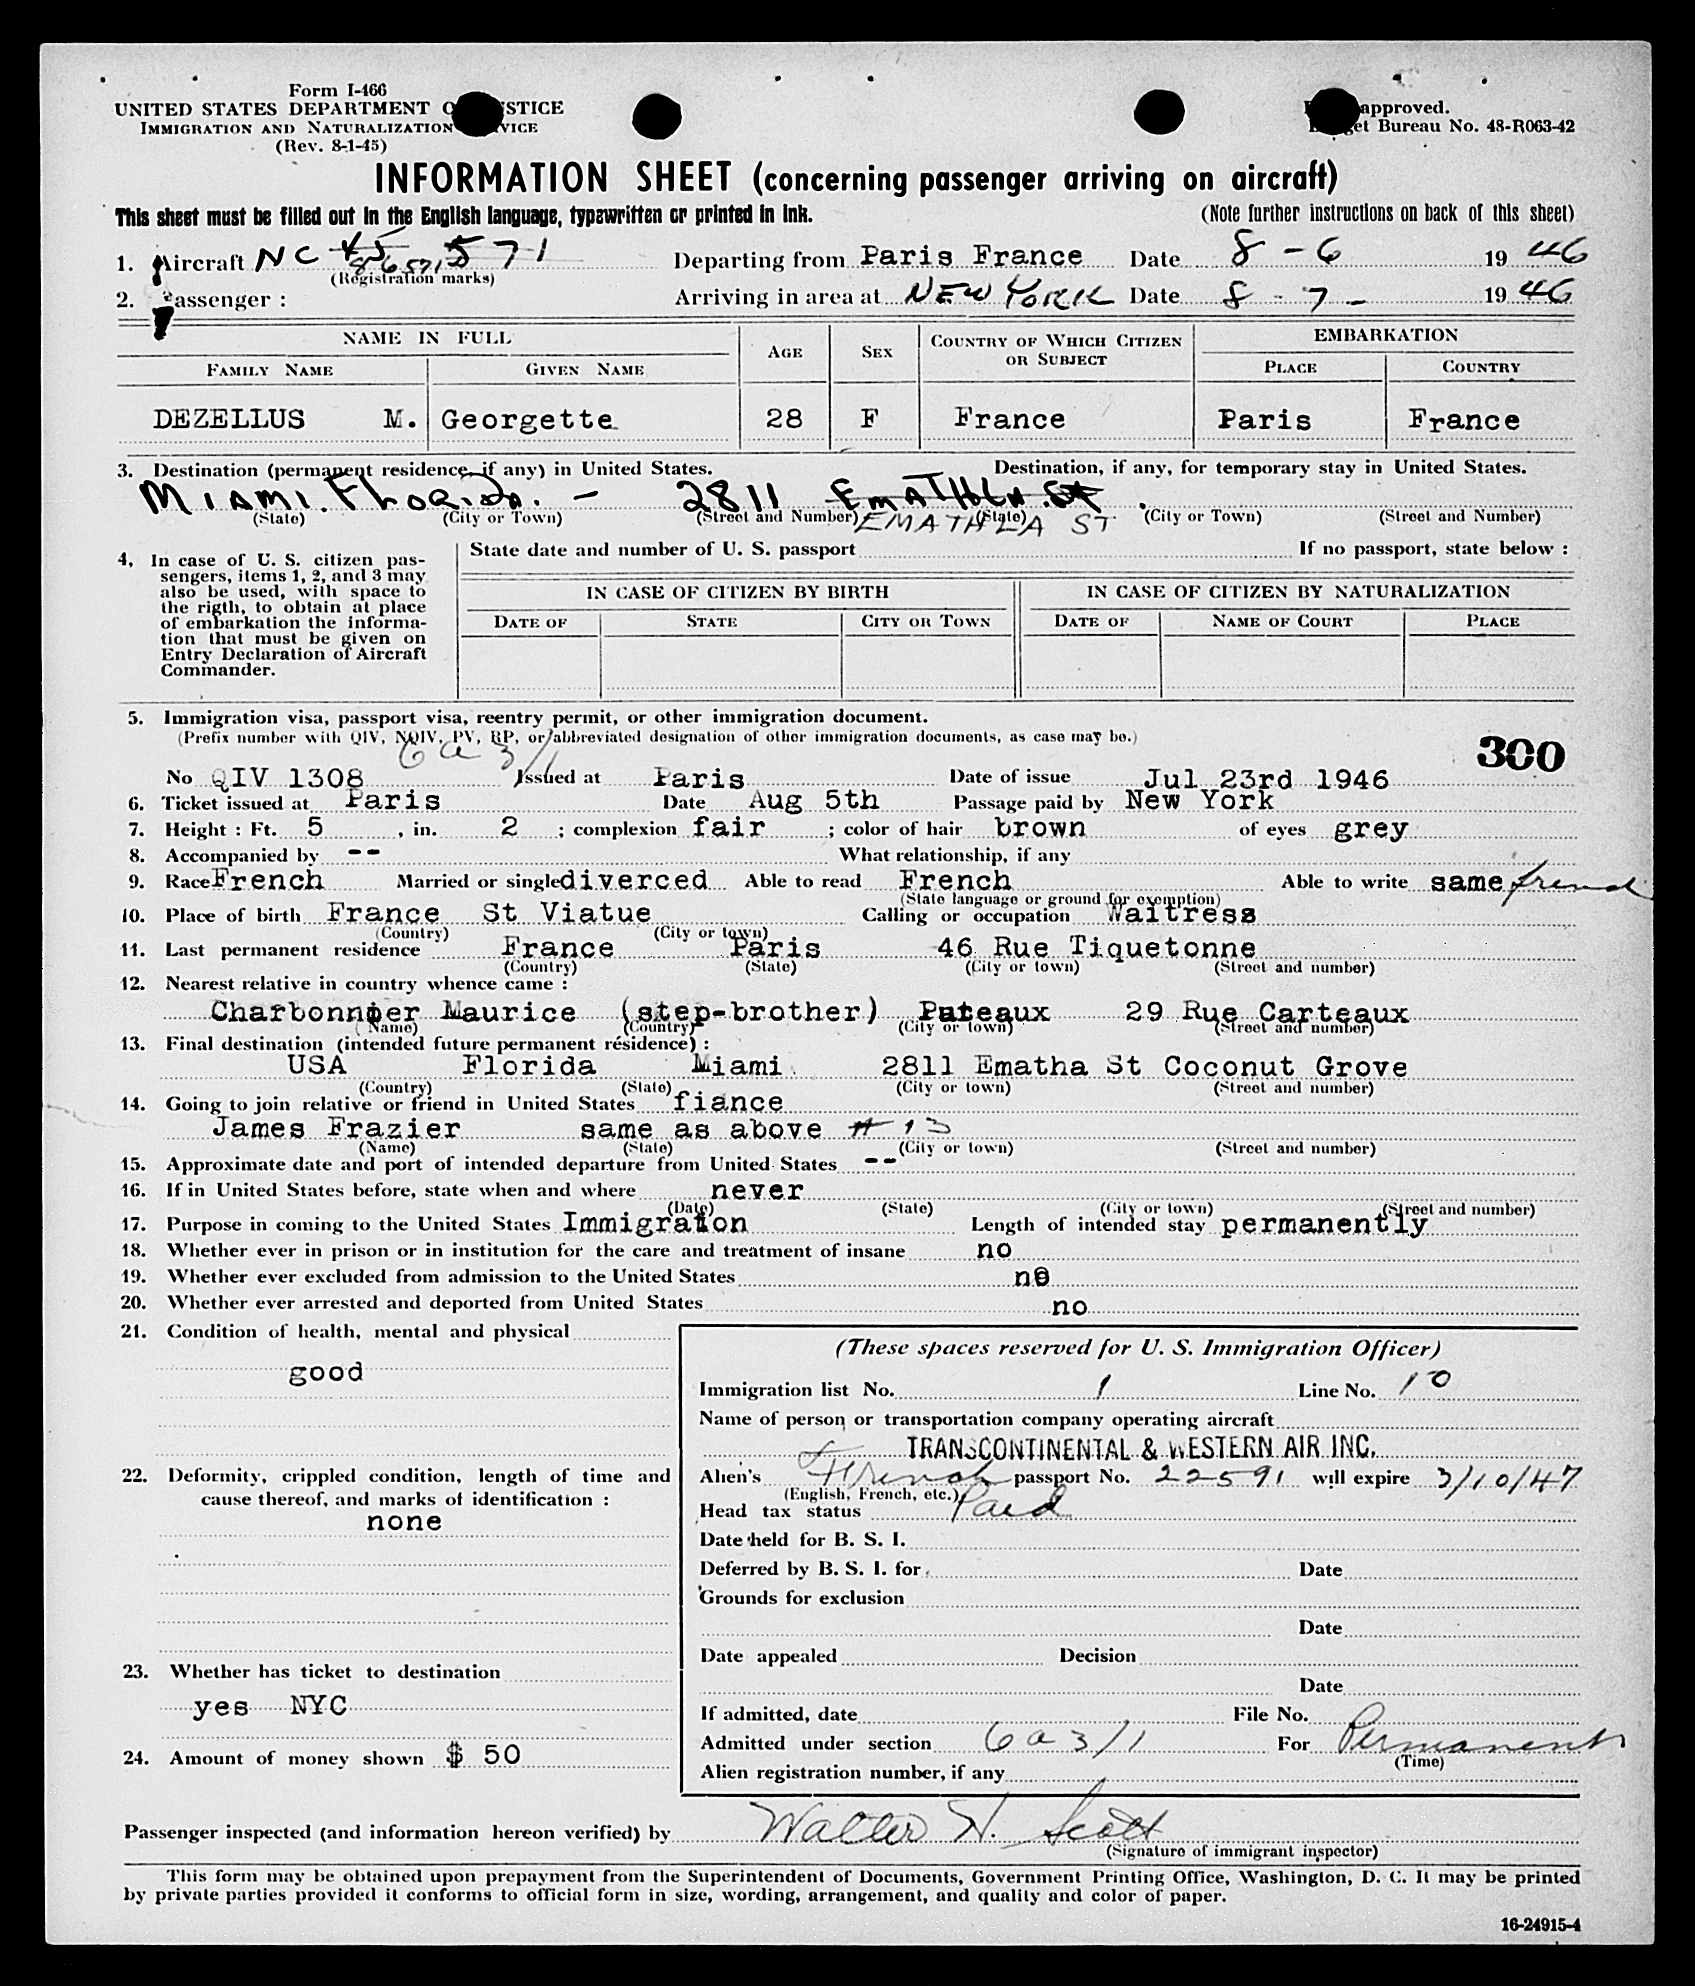 Form I-466
UNITED STATES DEPARTMENT OF JUSTICE
IMMIGRATION AND NATURALIZATION SERVICE
(Rev. 8-1-45)
approved.
Budget Bureau No. 43-R063-42
INFORMATION SHEET (concerning passenger arriving on aircraft)
This sheet must be filled out in the English language, typewritten or printed in ink.
(Note further instructions on back of this sheet)
1. Aircraft NC 45 571 86571 Departing from Paris France Date 8-6 1946
(Registration marks)
2. Passenger : Arriving in area at NEW YORK Date 8-7- 1946
NAME IN FULL AGE SEX COUNTRY OF WHICH CITIZEN OR SUBJECT EMBARKATION
FAMILY NAME GIVEN NAME PLACE COUNTRY
DEZELLUS M. Georgette 28 F France Paris France
3. Destination (permanent residence, if any) in United States. Destination, if any, for temporary stay in United States.
MIAMI. FLORIDA. - 2811 EMATHLA. St.
(State) (City or Town) (Street and Number) EMATHLA ST (State) (City or Town) (Street and Number)
4. In case of U. S. citizen pas-
sengers, items 1, 2, and 3 may
also be used, with space to
the rigth, to obtain at place
of embarkation the informa-
tion that must be given on
Entry Declaration of Aircraft
Commander.
State date and number of U. S. passport If no passport, state below :
IN CASE OF CITIZEN BY BIRTH IN CASE OF CITIZEN BY NATURALIZATION
DATE OF STATE CITY OR TOWN DATE OF NAME OF COURT PLACE
5. Immigration visa, passport visa, reentry permit, or other immigration document.
(Prefix number with QIV, NQIV, PV, RP, or abbreviated designation of other immigration documents, as case may be.)
6a3/1
300
No QIV 1308 Issued at Paris Date of issue Jul 23rd 1946
6. Ticket issued at Paris Date Aug 5th Passage paid by New York
7. Height : Ft. 5 , in. 2 ; complexion fair ; color of hair brown of eyes grey
8. Accompanied by -- What relationship, if any
9. Race French Married or single diverced Able to read French Able to write same french
(State language or ground for exemption)
10. Place of birth France St Viatue Calling or occupation Waitress
(Country) (City or town)
11. Last permanent residence France Paris 46 Rue Tiquetonne
(Country) (State) (City or town) (Street and number)
12. Nearest relative in country whence came :
Charbonnier Maurice (step-brother) Puteaux 29 Rue Carteaux
(Name) (Country) (City or town) (Street and number)
13. Final destination (intended future permanent résidence) :
USA Florida Miami 2811 Ematha St Coconut Grove
(Country) (State) (City or town) (Street and number)
14. Going to join relative or friend in United States fiance
James Frazier same as above # 13
(Name) (State) (City or town) (Street and number)
15. Approximate date and port of intended departure from United States --
16. If in United States before, state when and where never
(Date) (State) (City or town) (Street and number)
17. Purpose in coming to the United States Immigration Length of intended stay permanently
18. Whether ever in prison or in institution for the care and treatment of insane no
19. Whether ever excluded from admission to the United States no
20. Whether ever arrested and deported from United States no
21. Condition of health, mental and physical
good
22. Deformity, crippled condition, length of time and
cause thereof, and marks of identification :
none
23. Whether has ticket to destination
yes NYC
24. Amount of money shown $ 50
(These spaces reserved for U. S. Immigration Officer)
Immigration list No. 1 Line No. 10
Name of person or transportation company operating aircraft
TRANSCONTINENTAL & WESTERN AIR INC.
Alien's French passport No. 22591 will expire 3/10/47
(English, French, etc.)
Head tax status Paid
Date held for B. S. I.
Deferred by B. S. I. for Date
Grounds for exclusion
Date
Date appealed Decision
Date
If admitted, date File No.
Admitted under section 6a3/1 For Permanent
(Time)
Alien registration number, if any
Passenger inspected (and information hereon verified) by Walter H. Scott
(Signature of immigrant inspector)
This form may be obtained upon prepayment from the Superintendent of Documents, Government Printing Office, Washington, D. C. It may be printed
by private parties provided it conforms to official form in size, wording, arrangement, and quality and color of paper.
16-24915-4